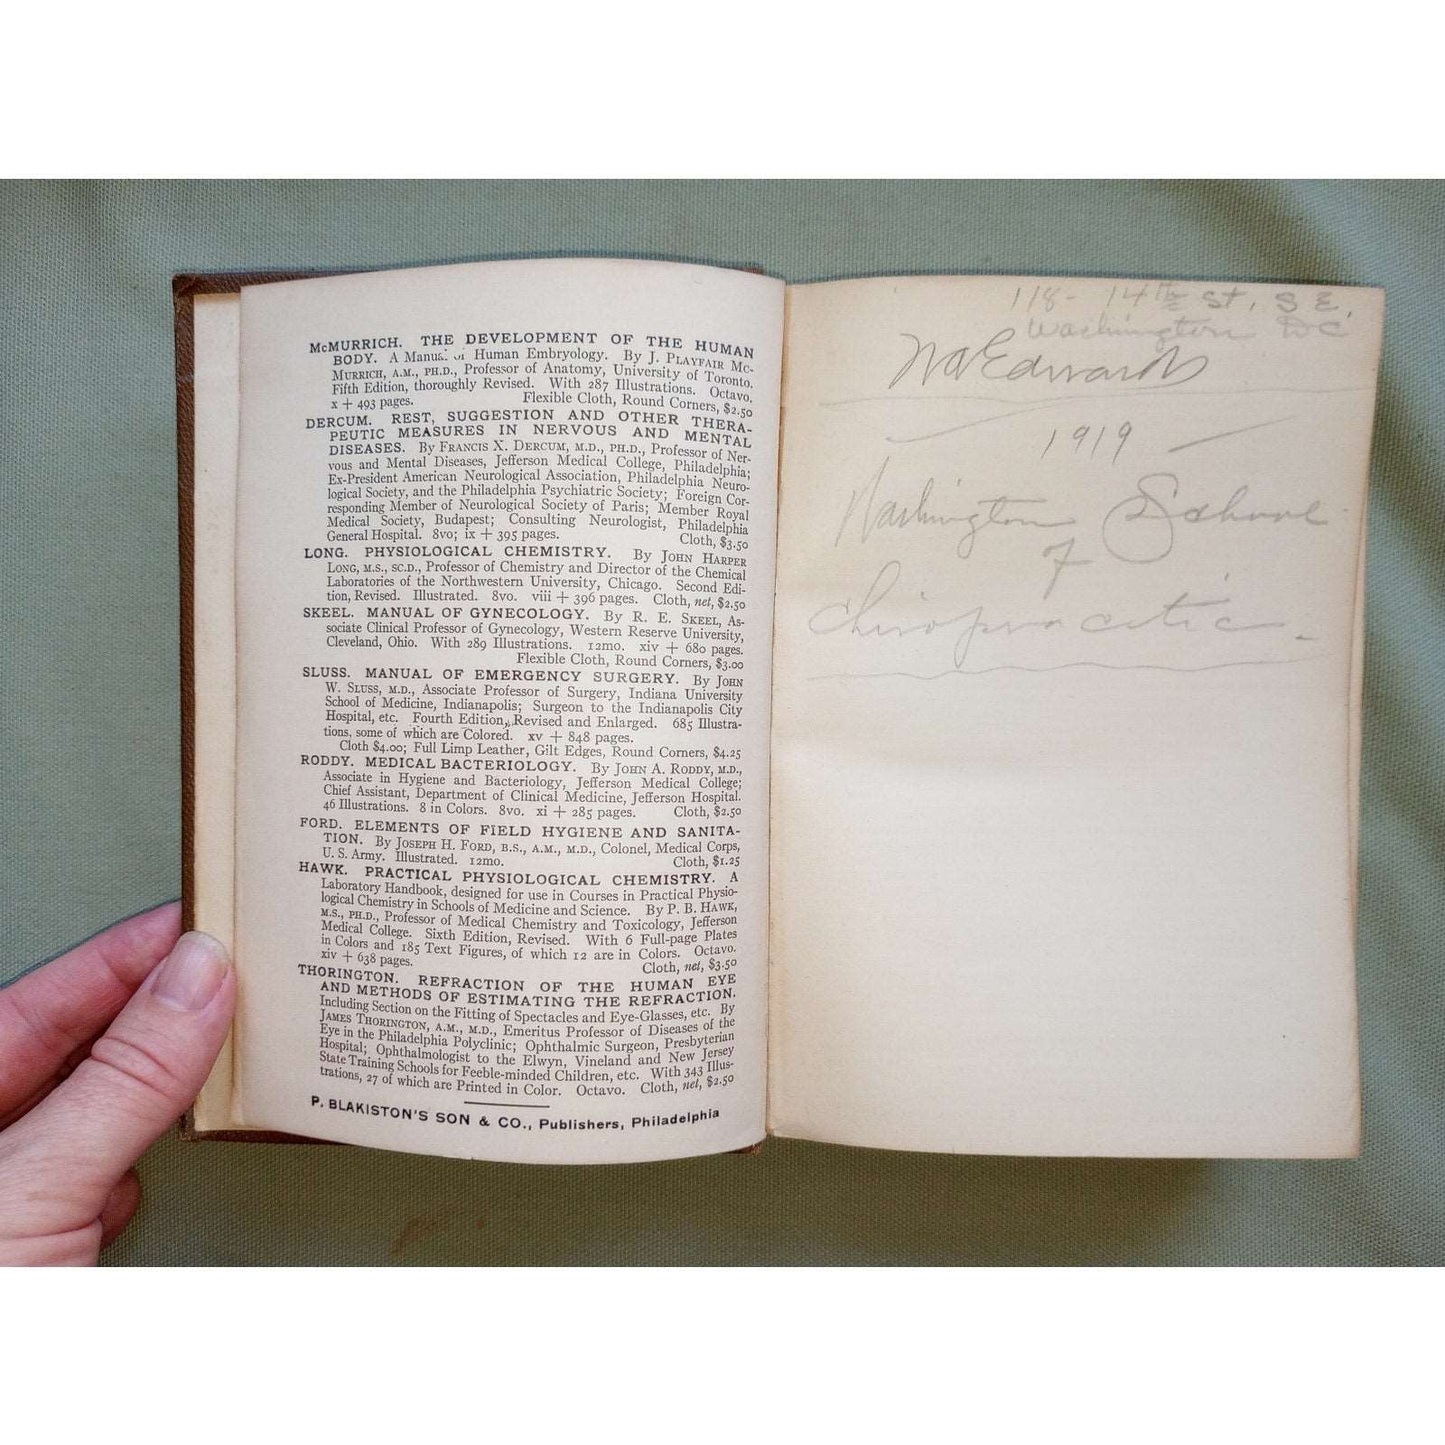 McMURRICH. THE DEVELOPMENT OF THE HUMAN
BODY. A Manual of Human Embryology. By J. PLAYFAIR MC-
MURRICH, A.M., PH.D., Professor of Anatomy, University of Toronto.
Fifth Edition, thoroughly Revised. With 287 Illustrations. Octavo.
x + 493 pages. Flexible Cloth, Round Corners, $2.50
DERCUM. REST, SUGGESTION AND OTHER THERA-
PEUTIC MEASURES IN NERVOUS AND MENTAL
DISEASES. By FRANCIS X. DERCUM, M.D., PH.D., Professor of Ner-
vous and Mental Diseases, Jefferson Medical College, Philadelphia;
Ex-President American Neurological Association, Philadelphia Neuro-
logical Society, and the Philadelphia Psychiatric Society; Foreign Cor-
responding Member of Neurological Society of Paris; Member Royal
Medical Society, Budapest; Consulting Neurologist, Philadelphia
General Hospital. 8vo; ix + 395 pages. Cloth, $3.50
LONG. PHYSIOLOGICAL CHEMISTRY. By JOHN HARPER
LONG, M.S., SC.D., Professor of Chemistry and Director of the Chemical
Laboratories of the Northwestern University, Chicago. Second Edi-
tion, Revised. Illustrated. 8vo. viii + 396 pages. Cloth, net, $2.50
SKEEL. MANUAL OF GYNECOLOGY. By R. E. SKEEL, As-
sociate Clinical Professor of Gynecology, Western Reserve University,
Cleveland, Ohio. With 289 Illustrations. 12mo. xiv + 680 pages.
Flexible Cloth, Round Corners, $3.00
SLUSS. MANUAL OF EMERGENCY SURGERY. By JOHN
W. SLUSS, M.D., Associate Professor of Surgery, Indiana University
School of Medicine, Indianapolis; Surgeon to the Indianapolis City
Hospital, etc. Fourth Edition, Revised and Enlarged. 685 Illustra-
tions, some of which are Colored. xv + 848 pages.
Cloth $4.00; Full Limp Leather, Gilt Edges, Round Corners, $4.25
RODDY. MEDICAL BACTERIOLOGY. By JOHN A. RODDY, M.D.,
Associate in Hygiene and Bacteriology, Jefferson Medical College;
Chief Assistant, Department of Clinical Medicine, Jefferson Hospital.
46 Illustrations. 8 in Colors. 8vo. xi + 285 pages. Cloth, $2.50
FORD. ELEMENTS OF FIELD HYGIENE AND SANITA-
TION. By JOSEPH H. FORD, B.S., A.M., M.D., Colonel, Medical Corps,
U. S. Army. Illustrated. 12mo. Cloth, $1.25
HAWK. PRACTICAL PHYSIOLOGICAL CHEMISTRY. A
Laboratory Handbook, designed for use in Courses in Practical Physio-
logical Chemistry in Schools of Medicine and Science. By P. B. HAWK,
M.S., PH.D., Professor of Medical Chemistry and Toxicology, Jefferson
Medical College. Sixth Edition, Revised. With 6 Full-page Plates
in Colors and 185 Text Figures, of which 12 are in Colors. Octavo.
xiv + 638 pages. Cloth, net, $3.50
THORINGTON. REFRACTION OF THE HUMAN EYE
AND METHODS OF ESTIMATING THE REFRACTION.
Including Section on the Fitting of Spectacles and Eye-Glasses, etc. By
JAMES THORINGTON, A.M., M.D., Emeritus Professor of Diseases of the
Eye in the Philadelphia Polyclinic; Ophthalmic Surgeon, Presbyterian
Hospital; Ophthalmologist to the Elwyn, Vineland and New Jersey
State Training Schools for Feeble-minded Children, etc. With 343 Illus-
trations, 27 of which are Printed in Color. Octavo. Cloth, net, $2.50
P. BLAKISTON'S SON & CO., Publishers, Philadelphia
118- 14th St, S E,
Washington DC
Edwards
1919
Washington School
of
Chiropractic